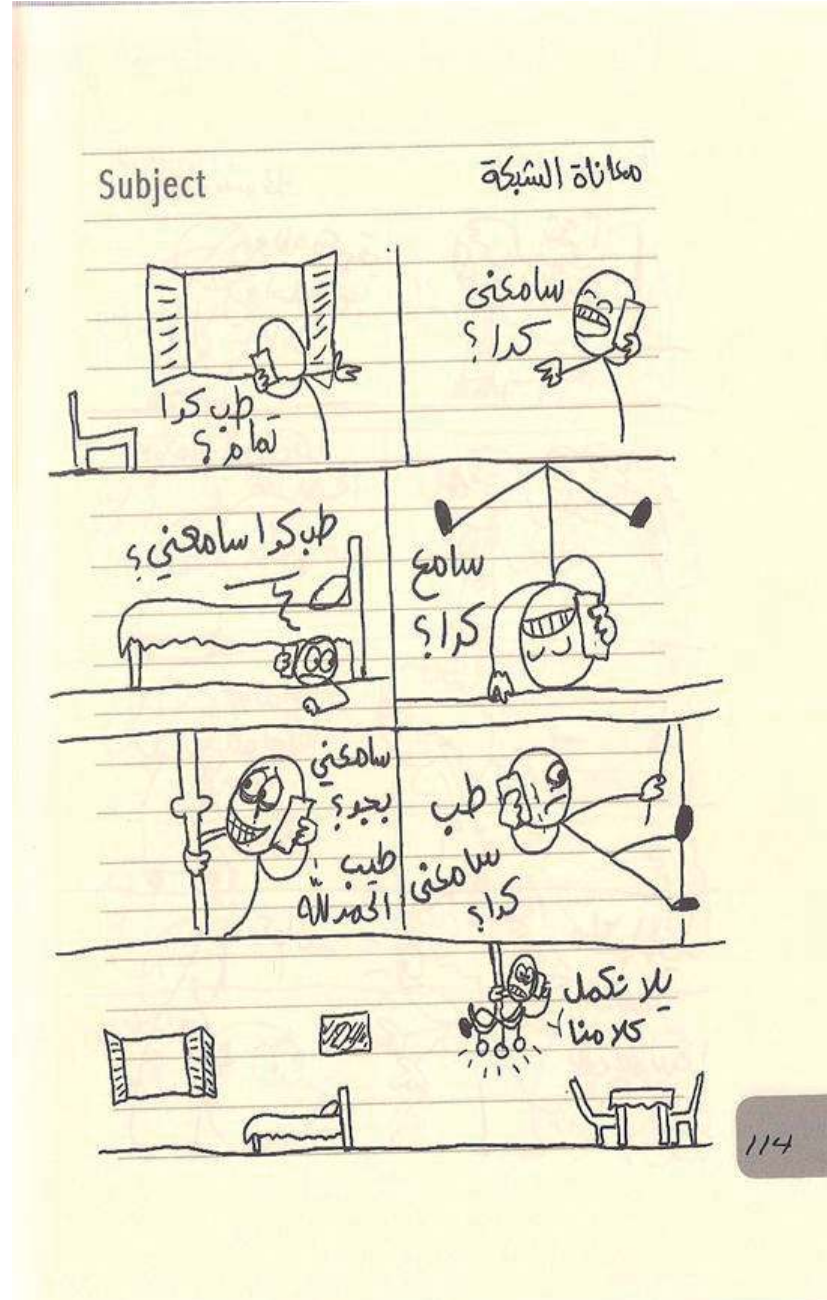 Subject
معاناة الشبكة
سامعنى
كدا؟
طب كدا
تمام؟
سامع
كدا؟
طب كدا سامعني؟
طب
سامعنى
كدا؟
سامعني
بجد؟
طيب
الحمد للّه
يلا نكمل
كلامنا
114